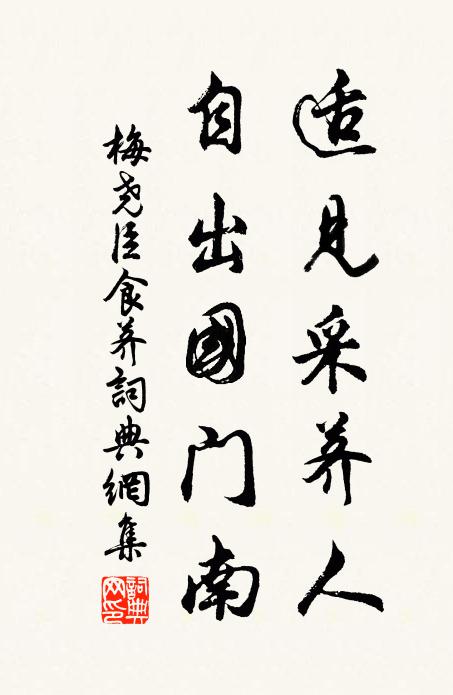 适见采荠人
自出國门南
梅尧臣食荠詞典網集
詞典网印